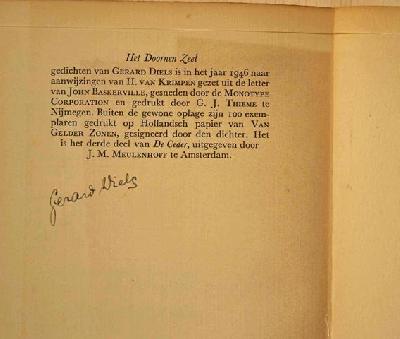 Het Doornen Zeel
gedichten van GERARD DIELS is in het jaar 1946 naar
aanwijzingen van H. VAN KRIMPEN gezet uit de letter
van JOHN BASKERVILLE, gesneden door de MONOTYPE
CORPORATION en gedrukt door G. J. THIEME te
Nijmegen. Buiten de gewone oplage zijn 100 exem-
plaren gedrukt op Hollandsch papier van VAN
GELDER ZONEN, gesigneerd door den dichter. Het
is het derde deel van De Ceder, uitgegeven door
J. M. MEULENHOFF te Amsterdam.
Gerard Diels